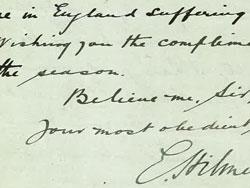 in England suffering
Wishing you the complime
the season.
Believe me, Sir
Your most obedient
E. Hilme